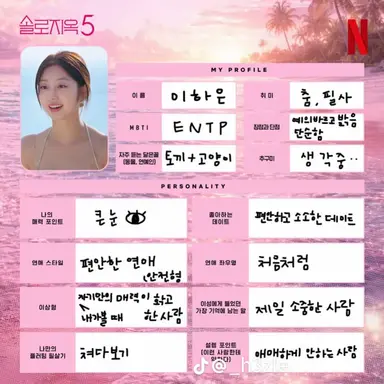 솔로지옥5
N
MY PROFILE
이 름
이하은
취 미
춤, 필사
MBTI
ENTP
장점과 단점
예의바르고 밝음
단순함
자주 듣는 닮은꼴
(동물, 연예인)
토끼+고양이
추구미
생각중..
PERSONALITY
나의
매력 포인트
큰눈
좋아하는
데이트
편안하고 소소한 데이트
연애 스타일
편안한 연애
(안정형)
연애 좌우명
처음처럼
이상형
자기만의 매력이 확고
내가볼 때 한사람
이성에게 들었던
가장 기억에 남는 말
제일 소중한 사람
나만의
플러팅 필살기
쳐다보기
설렘 포인트
(이런 사람한테
애매하게 안하는 사람